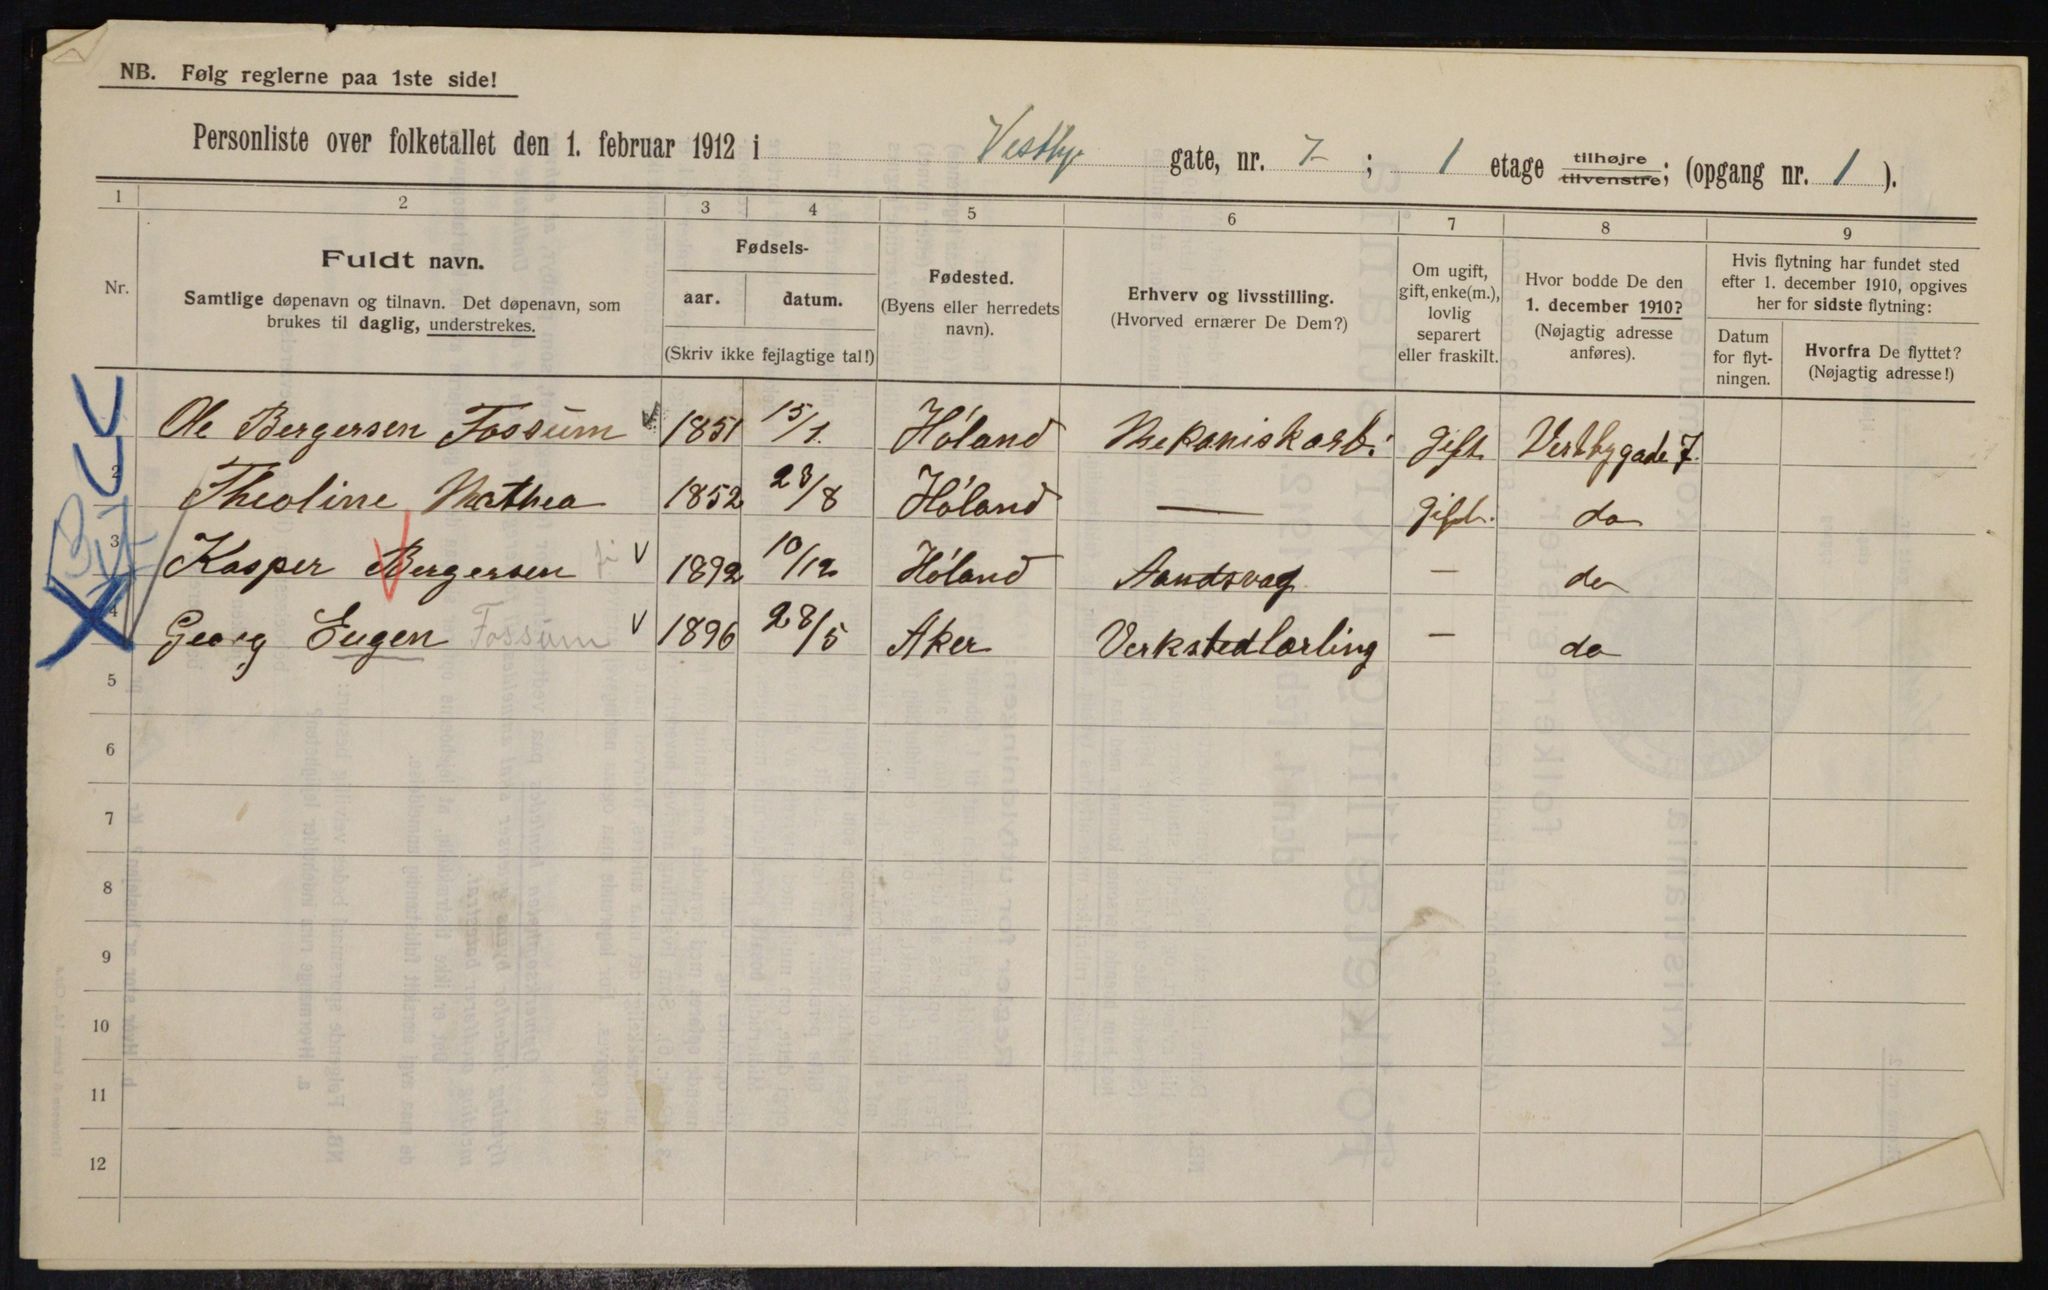 NB. Følg reglerne paa 1ste side!
Personliste over folketallet den 1. februar 1912 i Vestby- gate, nr. 7 ; 1 etage tilhøjre tilvenstre; (opgang nr. 1 ).
1 2 3 4 5 6 7 8 9
Nr.
Fuldt navn.
Samtlige døpenavn og tilnavn. Det døpenavn, som
brukes til daglig, understrekes.
Fødsels-
aar. datum.
(Skriv ikke fejlagtige tal!)
Fødested.
(Byens eller herredets
navn).
Erhverv og livsstilling.
(Hvorved ernærer De Dem?)
Om ugift,
gift, enke(m.),
lovlig
separert
eller fraskilt.
Hvor bodde De den
1. december 1910?
(Nøjagtig adresse
anføres).
Hvis flytning har fundet sted
efter 1. december 1910, opgives
her for sidste flytning:
Datum
for flyt-
ningen.
Hvorfra De flyttet?
(Nøjagtig adresse!)
Ole Bergersen Fossum 1851 15/1 Høland Mekaniskarb: gift Vestbygade 7.
2 Theoline Mathea 1852 28/8 Høland — gift. do
3 Kasper Bergersen 1892 10/12 Høland — do
4 Georg Eugen Fossum 1896 28/5 Aker Verkstedlærling — do
5
6
7
8
9
10
11
12